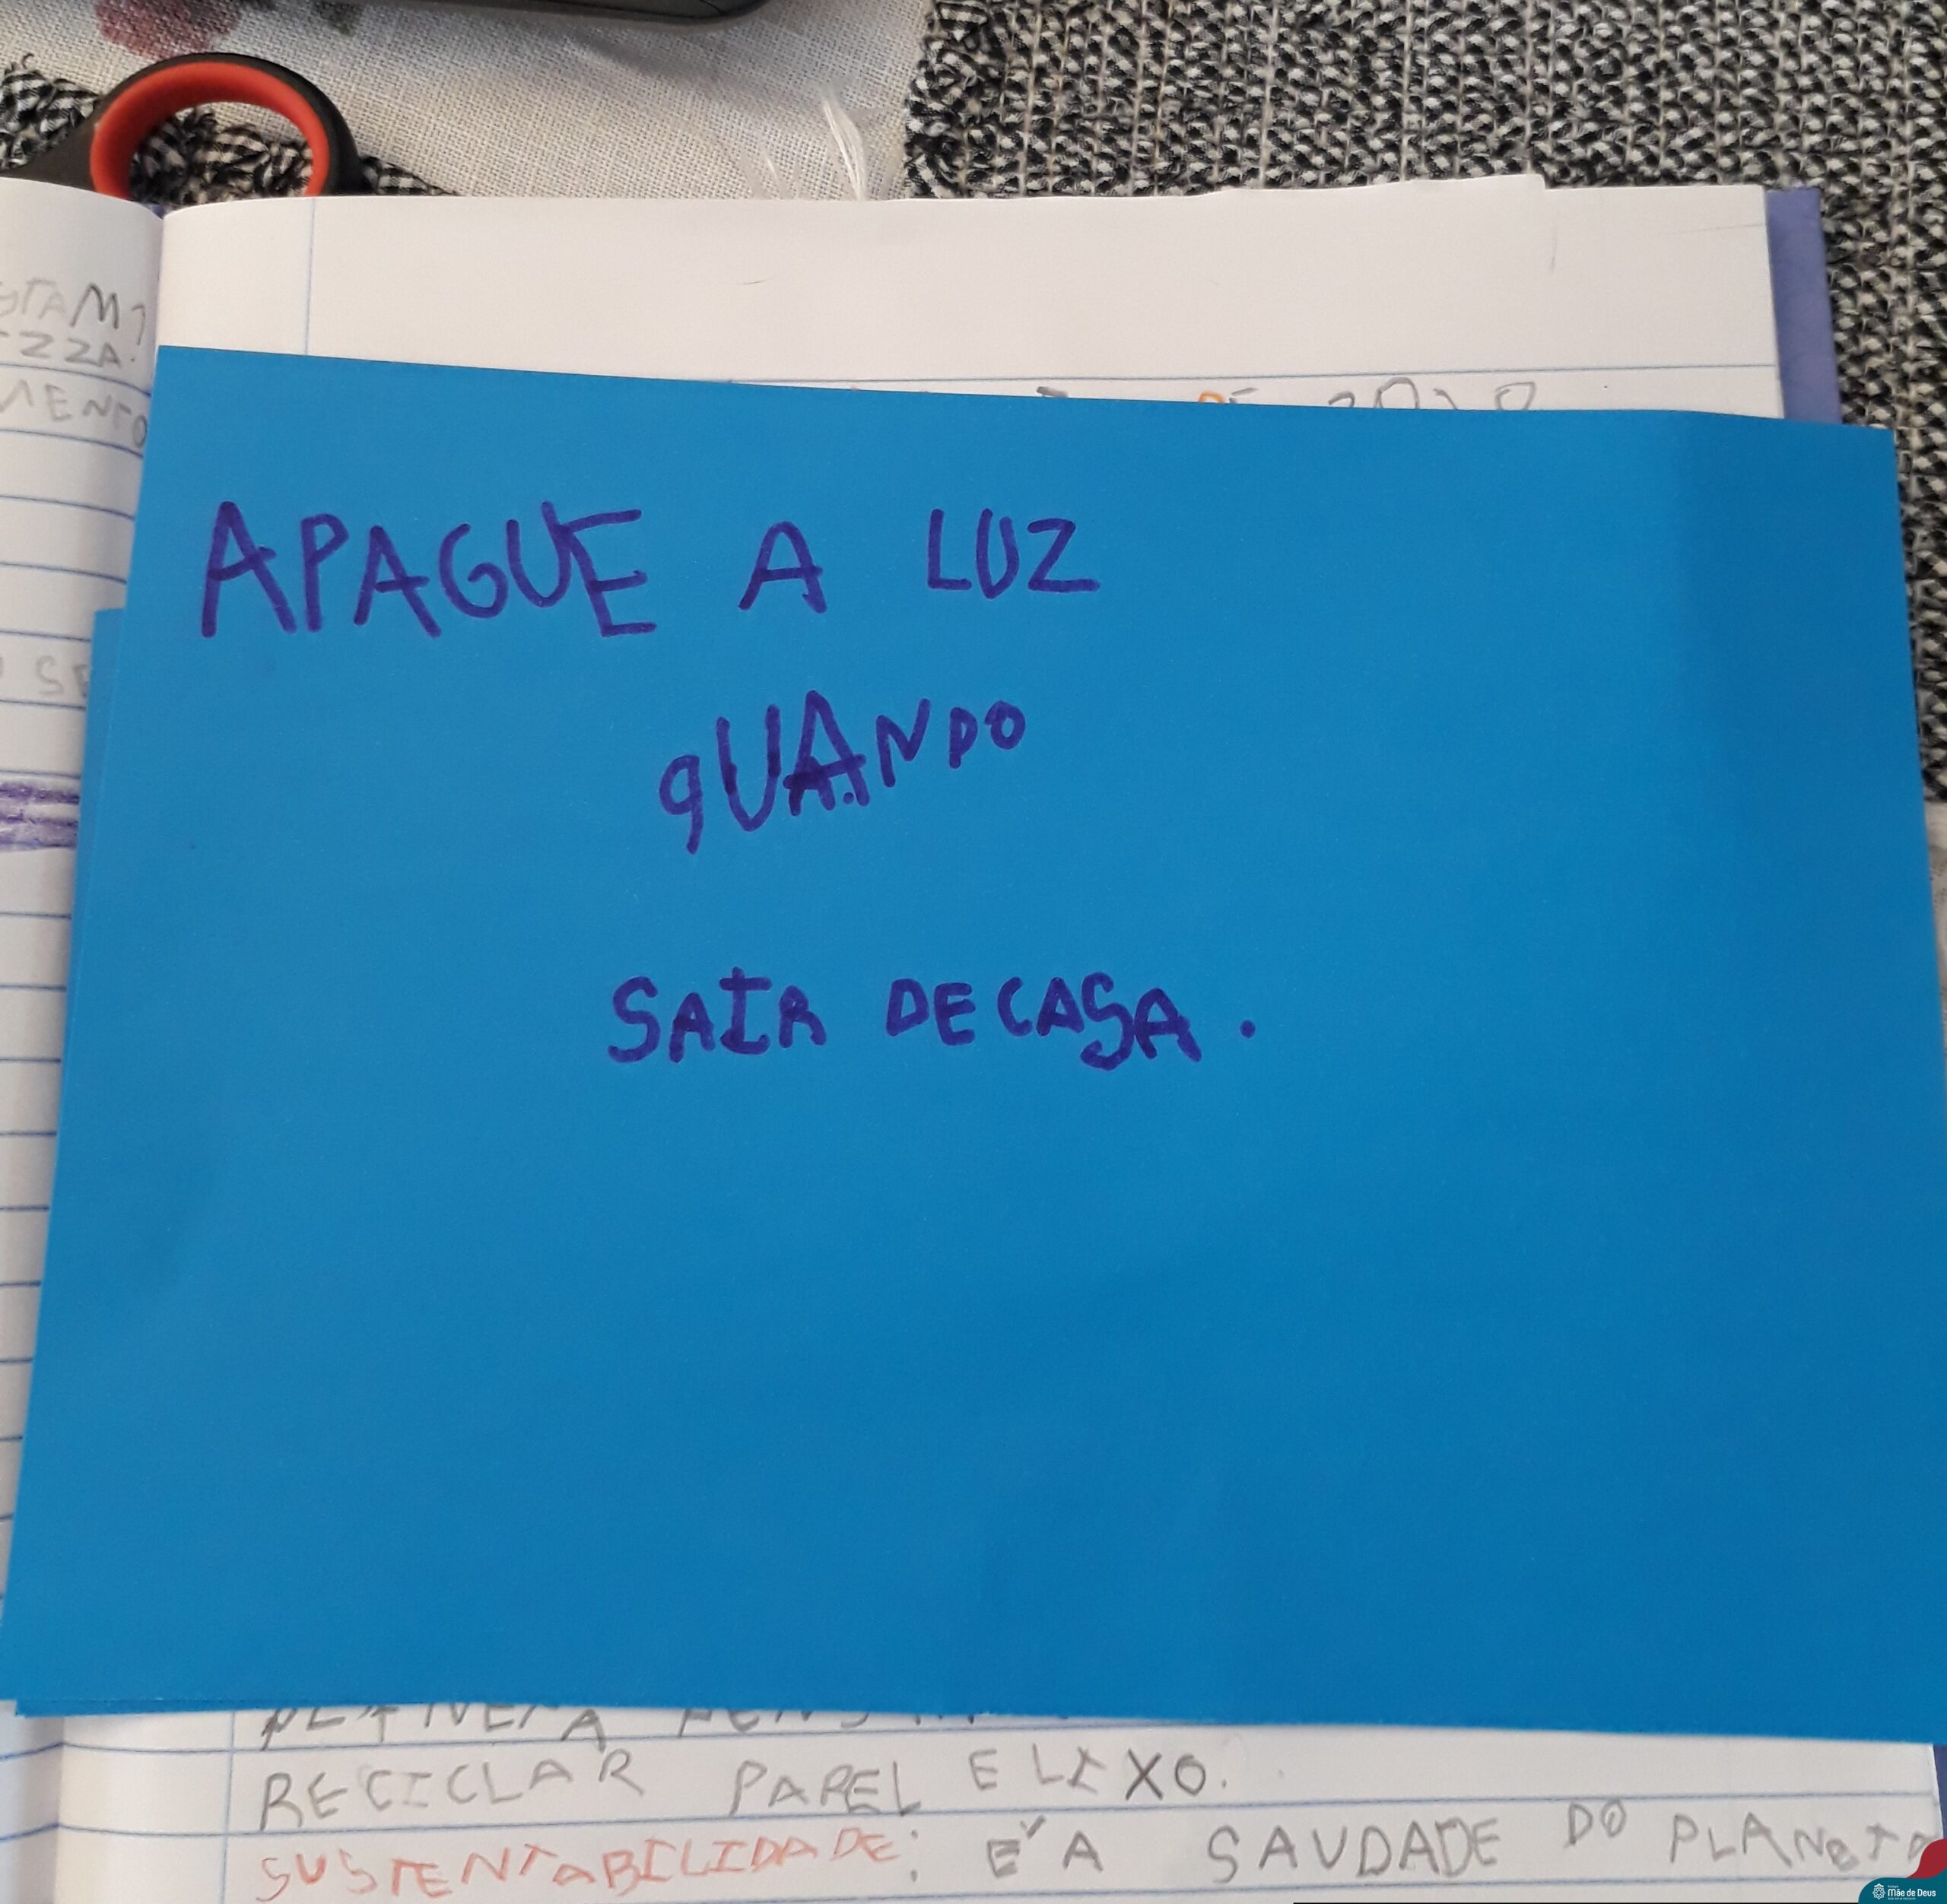 MENTO
APAGUE A LUZ
QUANDO
SAIR DE CASA.
RECICLAR PAPEL E LIXO.
SUSTENTABILIDADE: É A SAUDADE DO PLANETA
Mãe de Deus